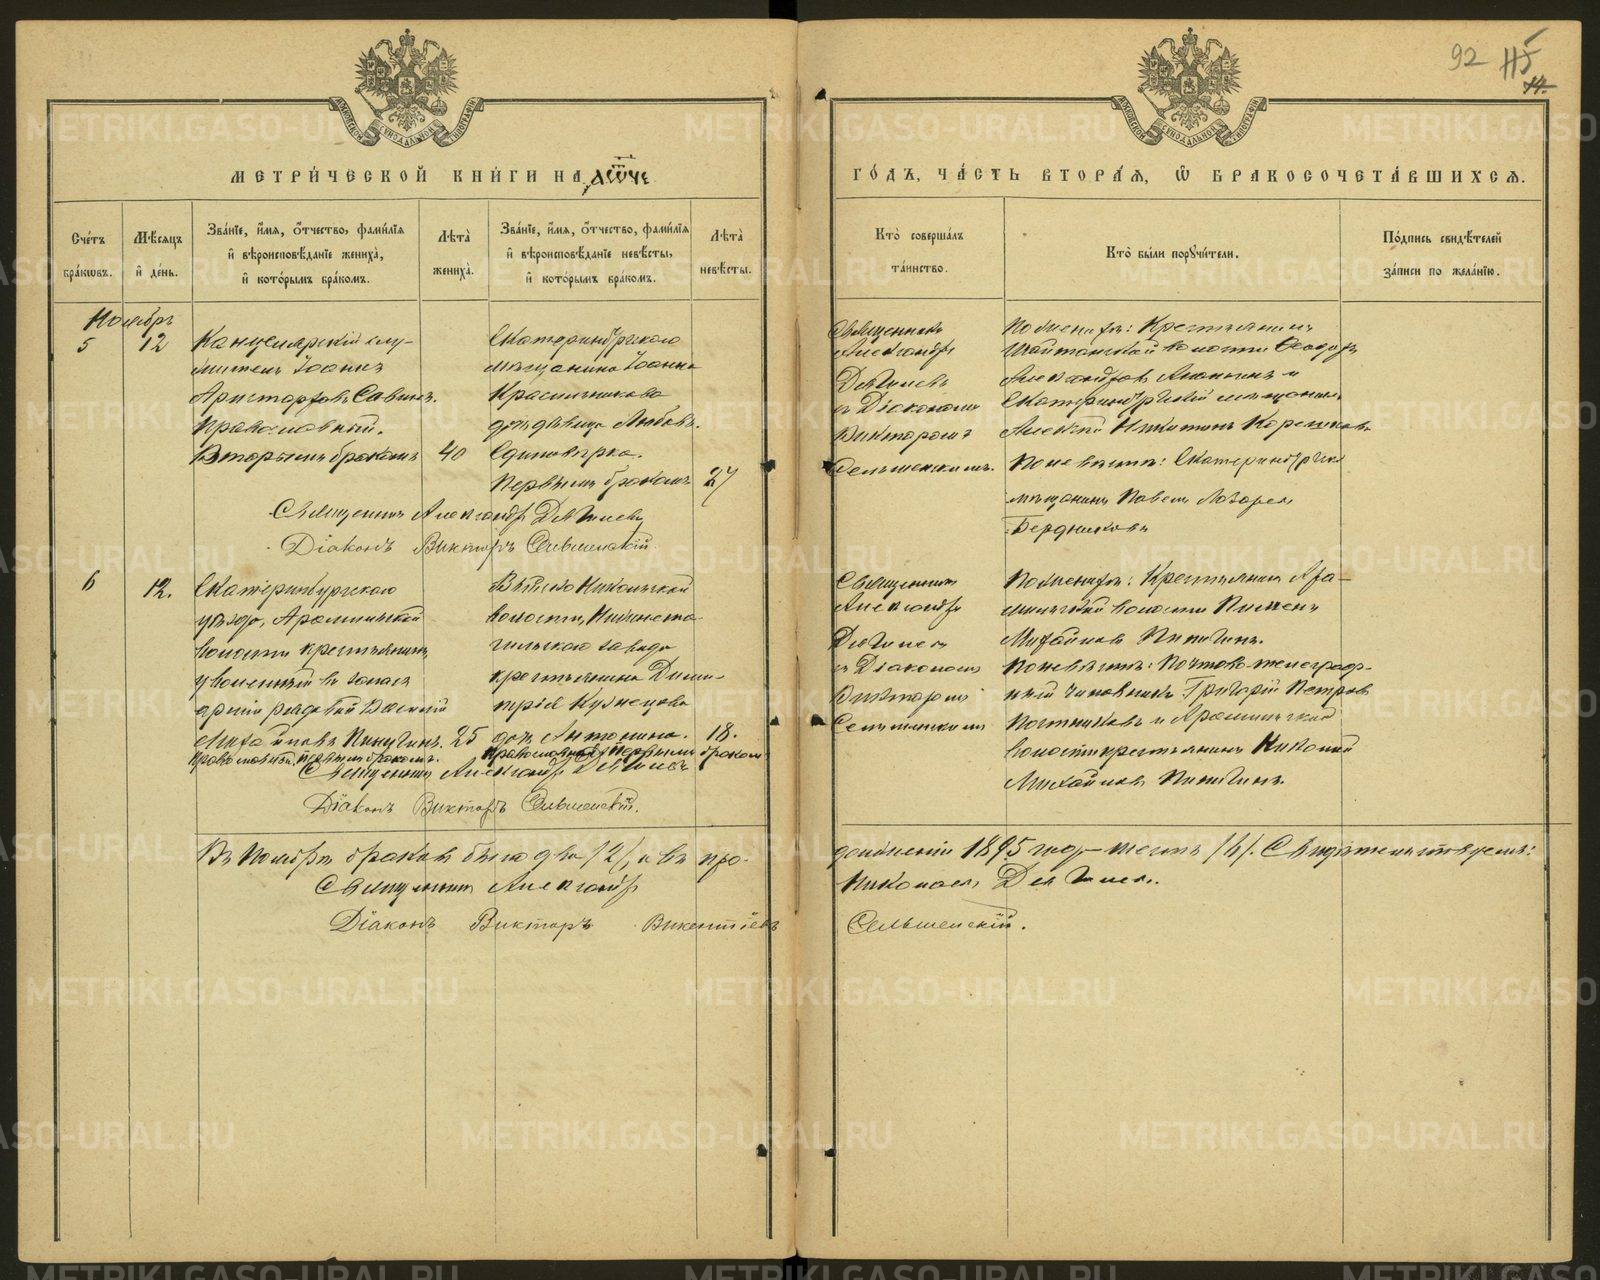 92 115
14.
МОСКОВСКОЙ СИНОДАЛЬНОЙ ТИПОГРАФІИ
МОСКОВСКОЙ СИНОДАЛЬНОЙ ТИПОГРАФІИ
МЕТРИ́ЧЕСКОЙ КНИ́ГИ НА ҂аѿче
ГО́ДЪ, ЧА́СТЬ ВТОРА́Я, Ѡ БРАКОСОЧЕТА́ВШИХСЯ.
Сче́тъ бра́кѡвъ.
Мѣ́сяцъ и҆ де́нь.
Зва́нїе, и҆́мя, ѻ҆́тчество, фами́лїя и҆ вѣроисповѣ́данїе жениха̀, и҆ кото́рымъ бра́комъ.
Лѣ́та жениха̀.
Зва́нїе, и҆́мя, ѻ҆́тчество, фами́лїя и҆ вѣроисповѣ́данїе невѣ́сты, и҆ кото́рымъ бра́комъ.
Лѣ́та невѣ́сты.
Кто̀ соверша́лъ та́инство.
Кто̀ бы́ли поручи́тели.
По́дпись свидѣ́телей за́писи по жела́нїю.
Ноябрь
5
12
Канцелярскій слу-
житель Іоаннъ
Аристарховъ Савинъ.
Православный.
Вторымъ бракомъ
40
Екатеринбургскаго
мѣщанина Іоанна
Красильникова
дочь дѣвица Любовь.
Единовѣрка.
Первымъ бракомъ
27
Священникъ
Александръ
Дягилевъ
съ Діакономъ
Викторомъ
Сельменскимъ.
По женихѣ: Крестьянинъ
Шайтанской волости Ѳеодоръ
Александровъ Ананьинъ и
Екатеринбургскій мѣщанинъ
Алексѣй Никитинъ Корешковъ
По невѣстѣ: Екатеринбургскій
мѣщанинъ Павелъ Лазаревъ
Бердниковъ
Священникъ Александръ Дягилевъ
Діаконъ Викторъ Сельменскій.
6
12.
Екатеринбургскаго
уѣзда, Арамильской
волости крестьянинъ
уволенный въ запасъ
арміи рядовой Василій
Михайловъ Пичугинъ.
Православный, первымъ бракомъ.
25
Выйско Никольской
волости, Нижнета-
гильскаго завода
крестьянина Дими-
трія Кузнецова
дочь Антонина.
Православной, первымъ бракомъ
18.
Священникъ
Александръ
Дягилевъ
съ Діакономъ
Викторомъ
Сельменскимъ
По женихѣ: Крестьянинъ Ара-
мильской волости Пименъ
Михайловъ Пичугинъ.
По невѣстѣ: Почтово-телеграф-
ный чиновникъ Григорій Петровъ
Постниковъ и Арамильской
волости крестьянинъ Николай
Михайловъ Пичугинъ.
Священникъ Александръ Дягилевъ
Діаконъ Викторъ Сельменскій.
Въ Ноябрѣ браковъ было два /2/, а въ про-
долженіи 1895 года — шесть /6/. Свидѣтельствуемъ:
Священникъ Александръ Николаевъ Дягилевъ.
Діаконъ Викторъ Викентіевъ Сельменскій.
METRIKI.GASO-URAL.RU